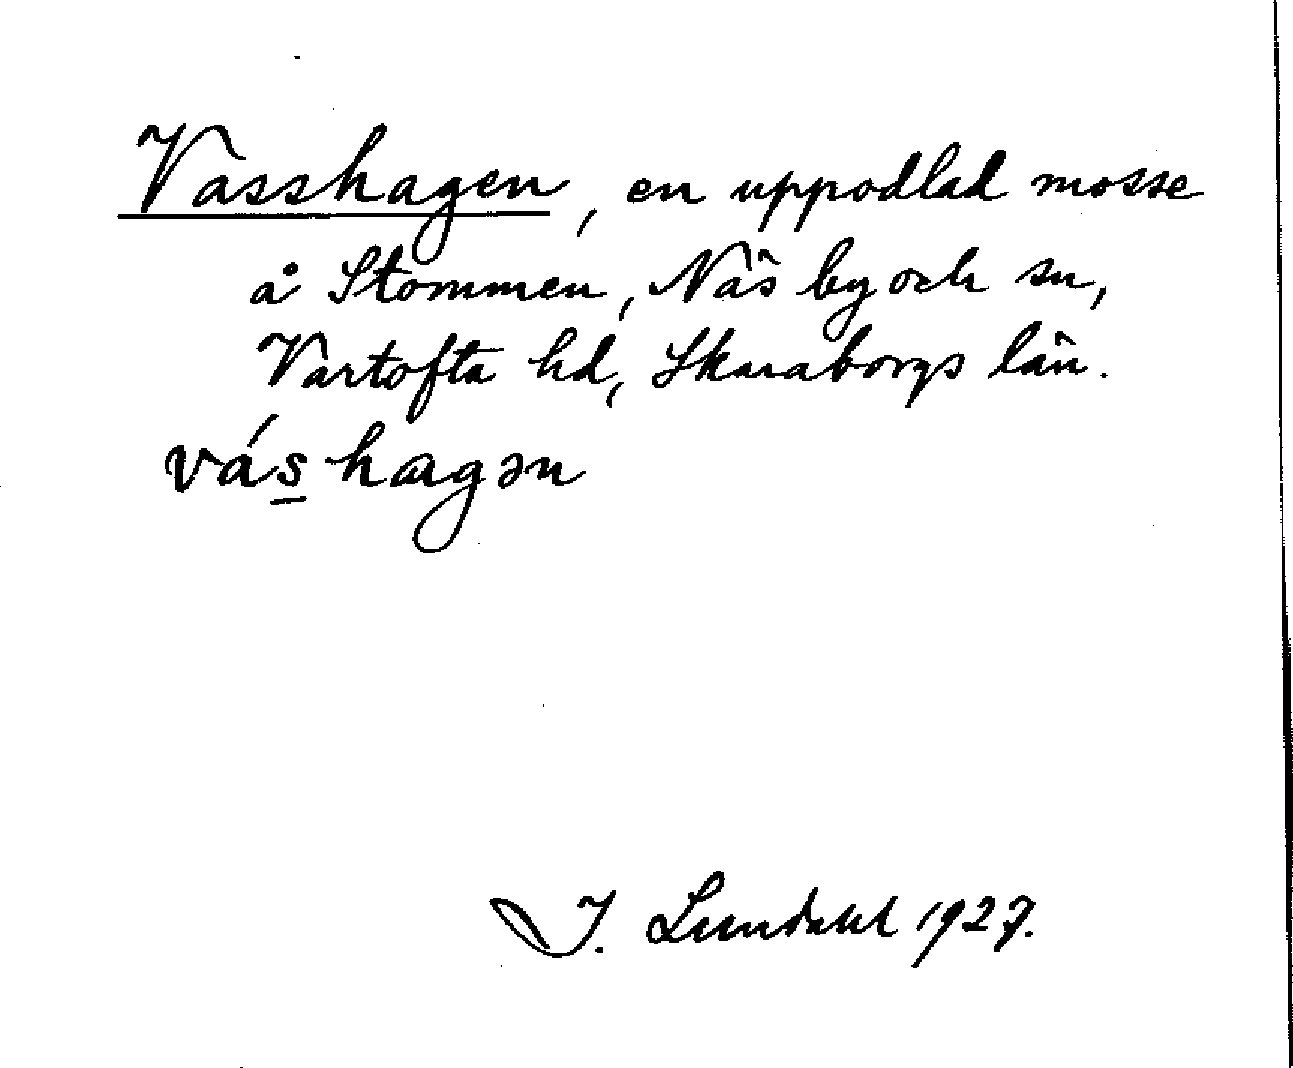 Vasshagen, en uppodlad mosse
å Stommen, Näs by och sn,
Vartofta hd, Skaraborgs län.
vás̲hagən
I. Lundahl 1927.